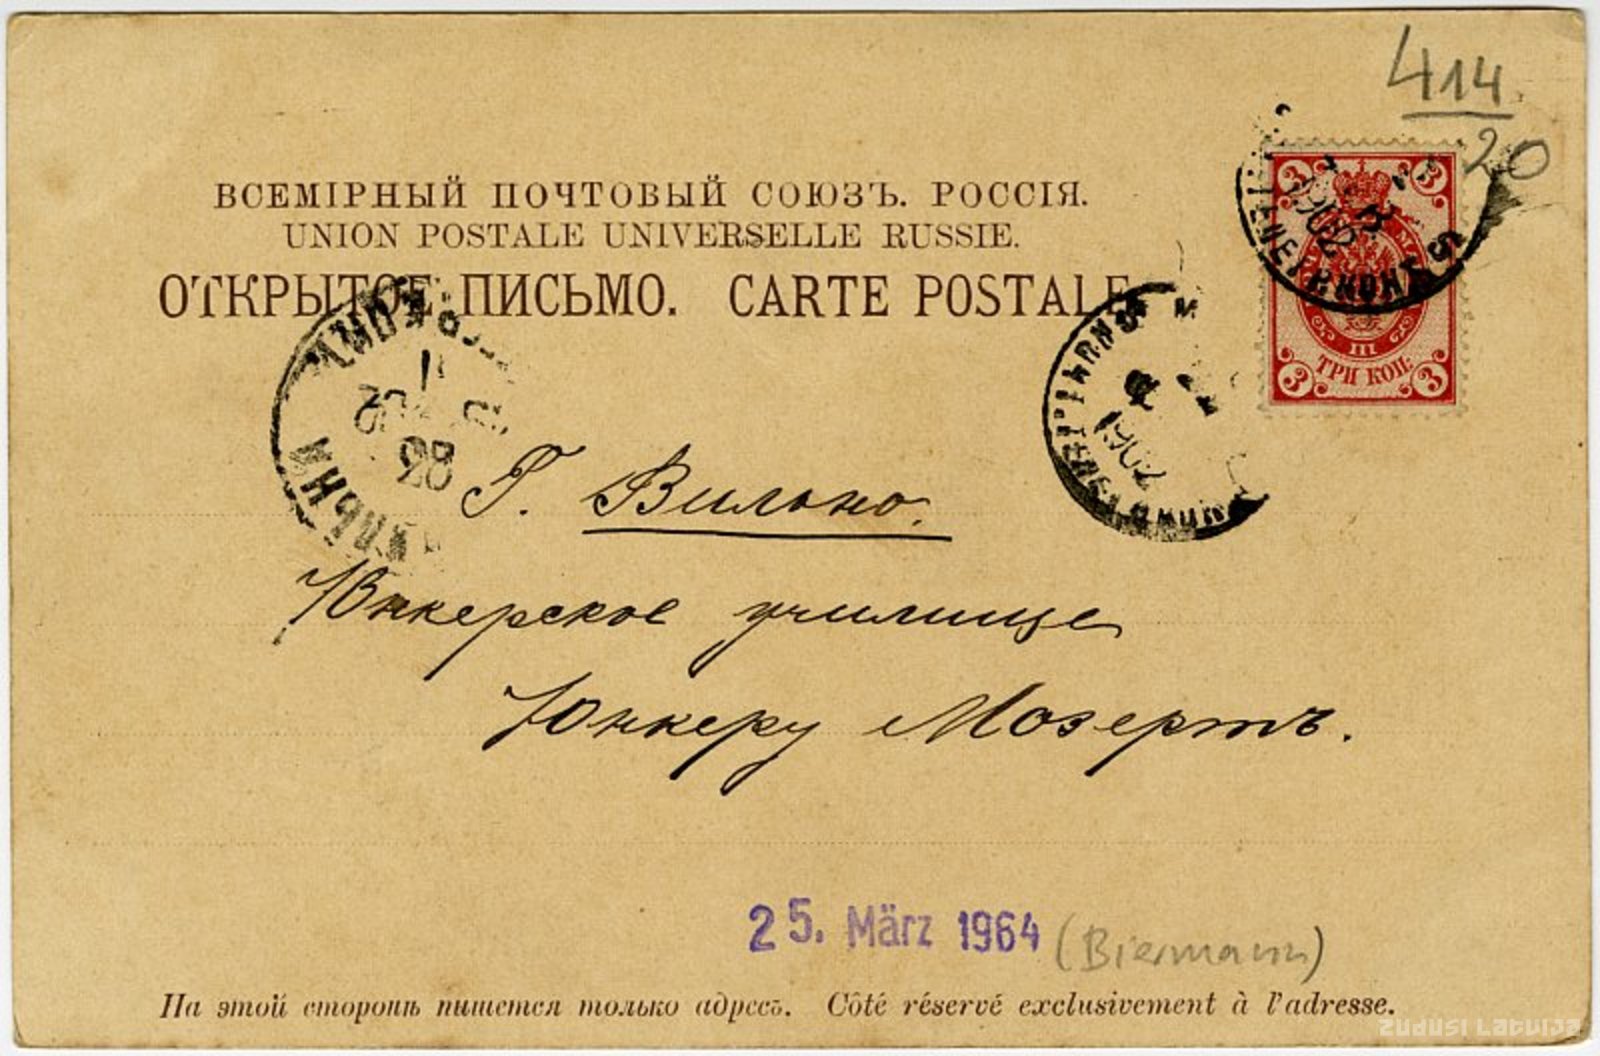 414
20
ВСЕМІРНЫЙ ПОЧТОВЫЙ СОЮЗЪ. РОССІЯ.
UNION POSTALE UNIVERSELLE RUSSIE.
ОТКРЫТОЕ ПИСЬМО. CARTE POSTALE
3 3
1902
III
ТРИ КОП.
3 3
1902
Г. Вильно.
Юнкерское училище
Юнкеру Мозертъ.
25. März 1964 (Biermann)
На этой сторонѣ пишется только адресъ. Côté réservé exclusivement à l'adresse.
Zudusi Latvija